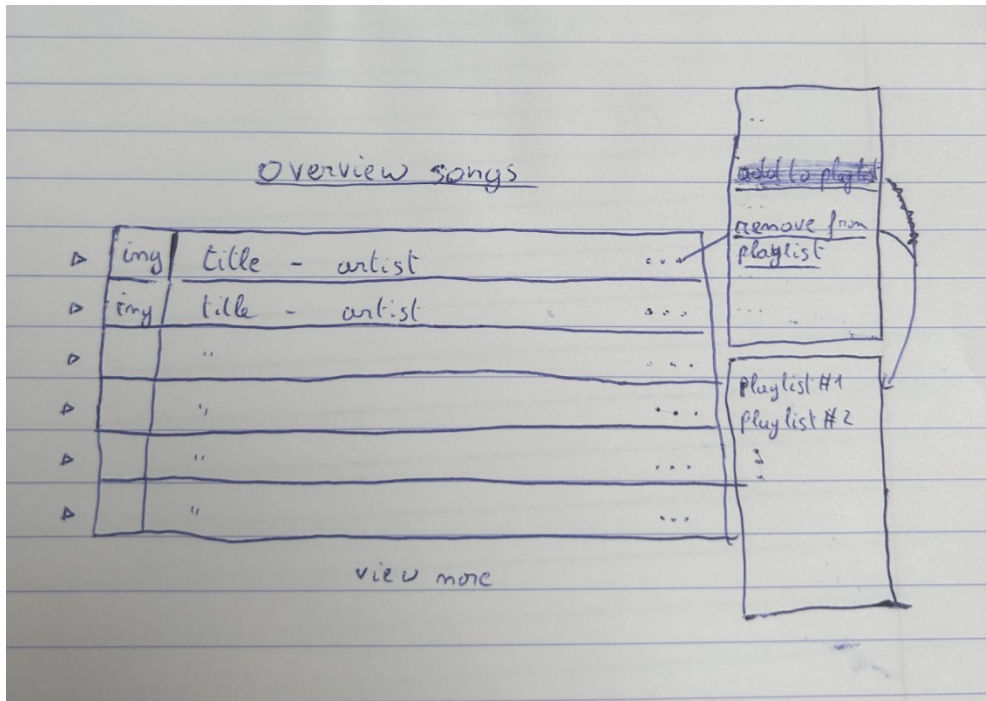 overview songs
img title - artist ...
img title - artist ...
" ...
" ...
" ...
" ...
view more
..
add to playlist
remove from
playlist
...
playlist #1
playlist #2
: